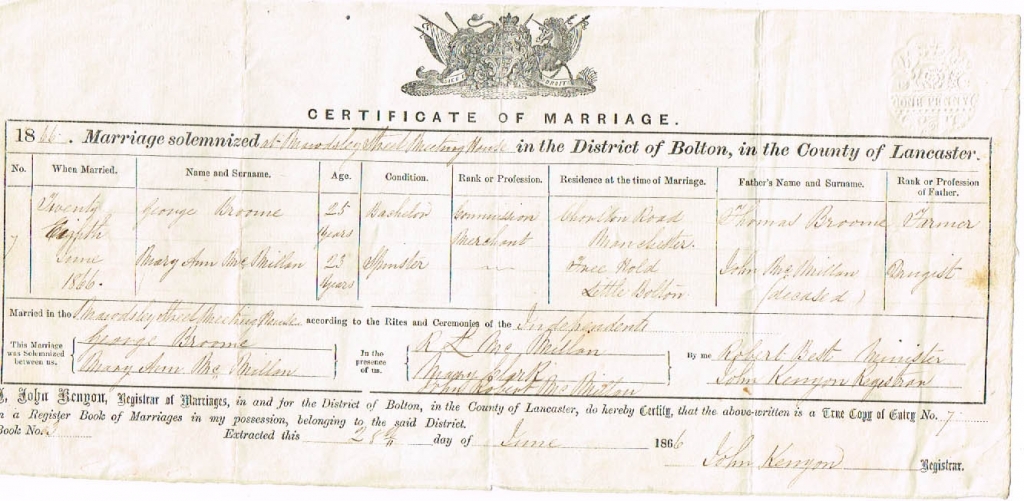 CERTIFICATE OF MARRIAGE.
1866. Marriage solemnized at Mawdsley Street Meeting House in the District of Bolton, in the County of Lancaster.
No. When Married. Name and Surname. Age. Condition. Rank or Profession. Residence at the time of Marriage. Father's Name and Surname. Rank or Profession of Father.
Twenty George Broome 25 Bachelor Commission Chorlton Road Thomas Broome Farmer
Years Merchant Manchester.
7 June Mary Ann Mc Millan 23 Spinster — Hold John Mc Millan Drugist
1866. Years Little Bolton (deceased)
Married in the Mawdsley Street Meeting House according to the Rites and Ceremonies of the Independents
This Marriage was Solemnized between us. George Broome
Mary Ann Mc Millan
In the presence of us. R L Mc Millan
Mary Clark
John Mc Millan
By me Robert Best Minister
John Kenyon Registrar
I, John Kenyon, Registrar of Marriages, in and for the District of Bolton, in the County of Lancaster, do hereby Certify, that the above-written is a True Copy of Entry No. 7
in a Register Book of Marriages in my possession, belonging to the said District.
Book No. Extracted this 28th day of June 1866
John Kenyon Registrar.